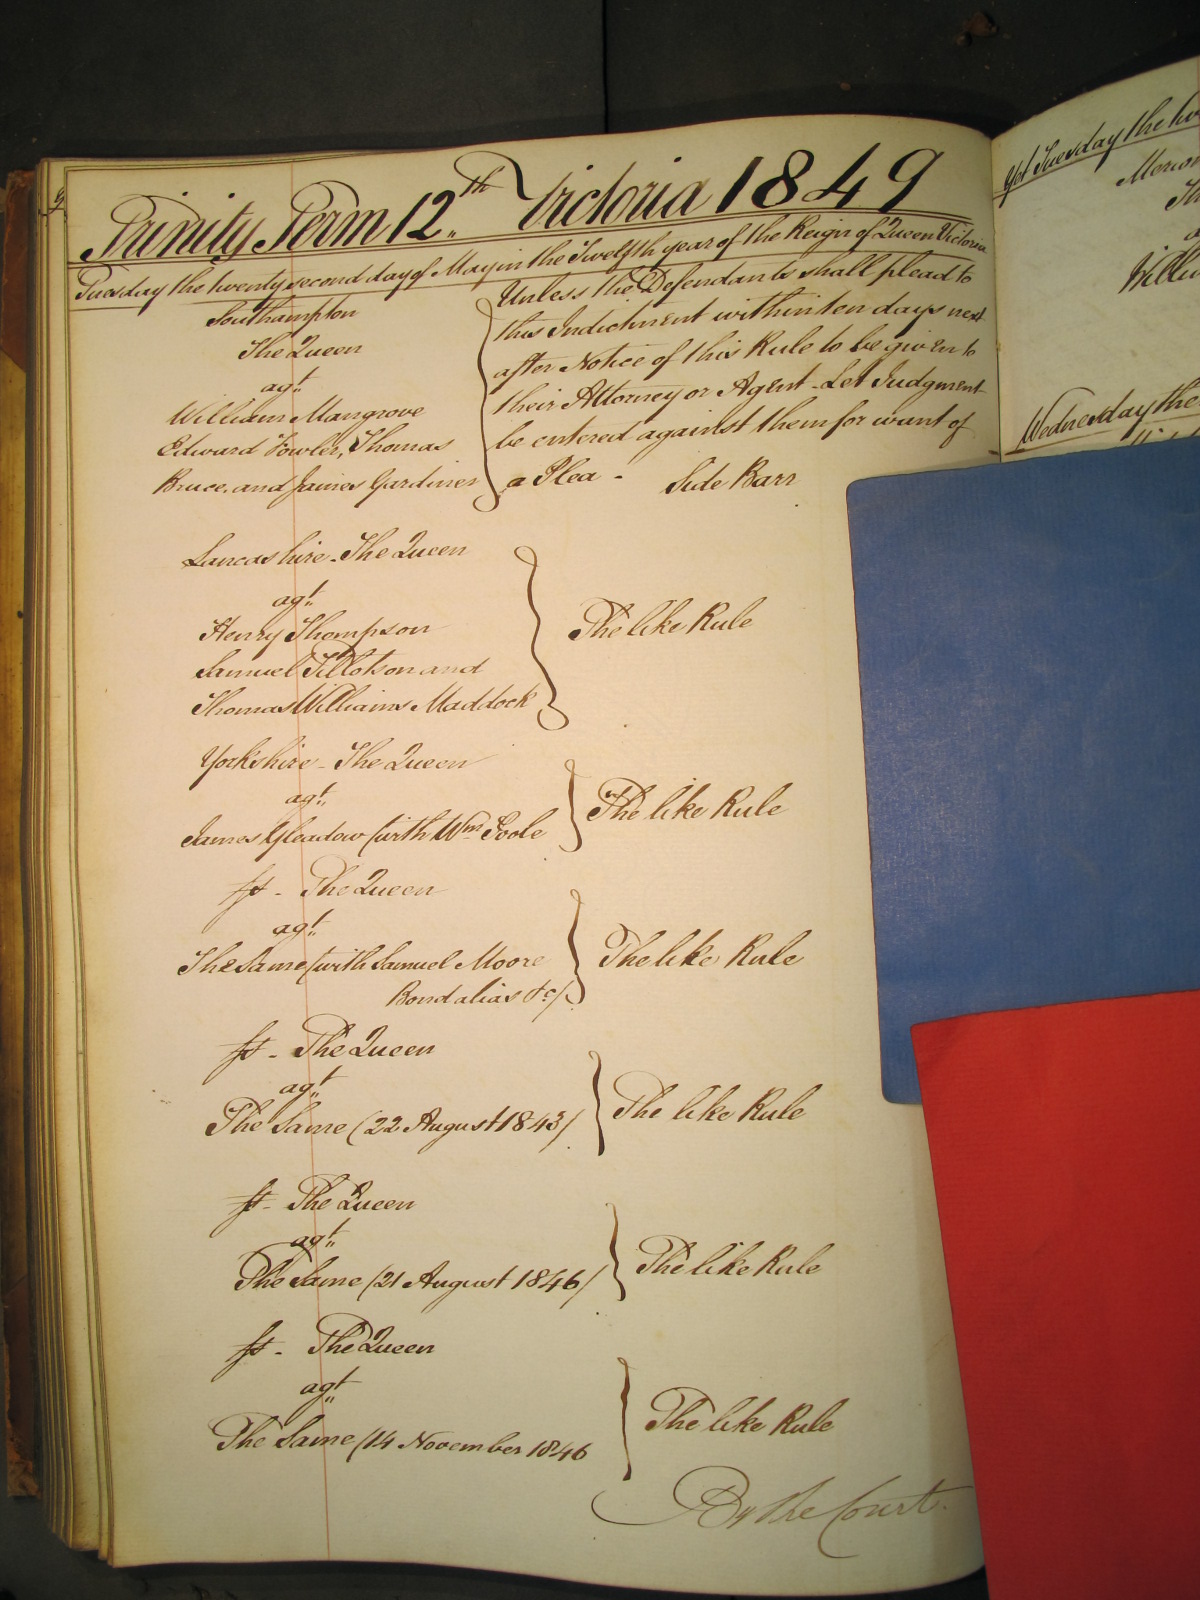 Trinity Term 12th Victoria 1849
Tuesday the twenty second day of May in the Twelfth year of the Reign of Queen Victoria
Southampton
The Queen
agt
William Mangrove
Edward Fowler, Thomas
Bruce and James Gardiner
Unless the Defendants shall plead to
this Indictment within ten days next
after Notice of this Rule to be given to
their Attorney or Agent - Let Judgment
be entered against them for want of
a Plea - Side Barr
Lancashire - The Queen
agt
Henry Thompson
Samuel Tillotson and
Thomas Williams Maddock
The like Rule
Yorkshire - The Queen
agt
James Gleadow (with Wm Poole
The like Rule
The Queen
agt
The Same (with Samuel Moore
Bond alias &c)
The like Rule
The Queen
agt
The Same (22 August 1843)
The like Rule
The Queen
agt
The Same (21 August 1846)
The like Rule
The Queen
agt
The Same (14 November 1846
The like Rule
By the Court.
Yet Tuesday the
Wednesday the